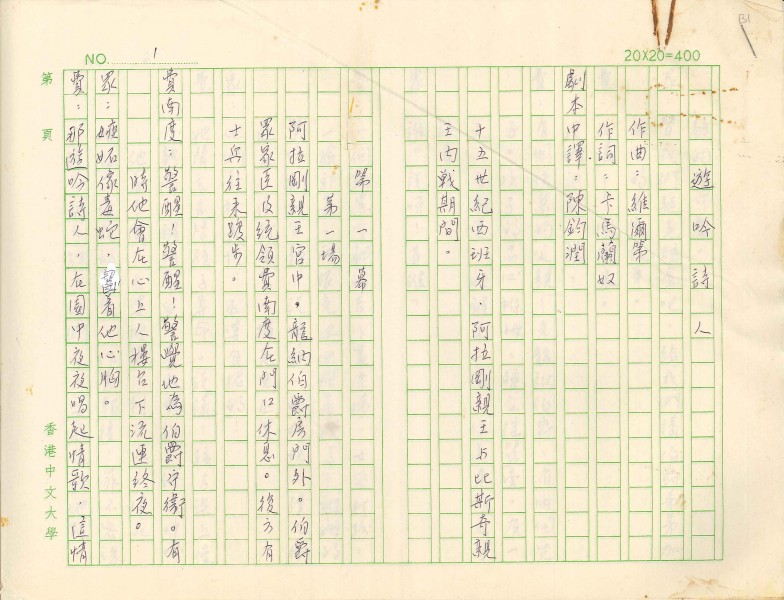 B1
NO. 1
20X20=400
第 頁
遊吟詩人
作曲：維爾第
作詞：卡馬蘭奴
劇本中譯：陳鈞潤
十五世紀西班牙．阿拉剛親王与比斯奇親
王內戰期間。
第一幕
第一場
阿拉剛親王宮中．龍納伯爵房門外。伯爵
眾家臣及統領費南度在門口休息。後方有
士兵往來踱步。
費南度：警醒！警醒！警覺地為伯爵守衞。有
時他會在心上人樓台下流連終夜。
眾：嫉妬像毒蛇．嚙着他心胸。
費：那遊吟詩人．在園中夜夜唱起情歌．這情
香港中文大學